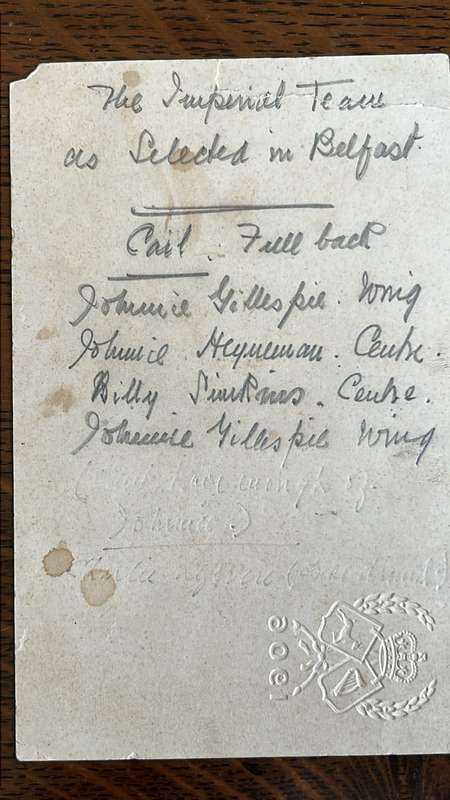 The Imperial Team
as Selected in Belfast.
Cail. Full back
Johnnie Gillespie. Wing
Johnnie Heyneman. Centre.
Billy Simkins. Centre.
Johnnie Gillespie Wing
enough of
Johnnie)
1906